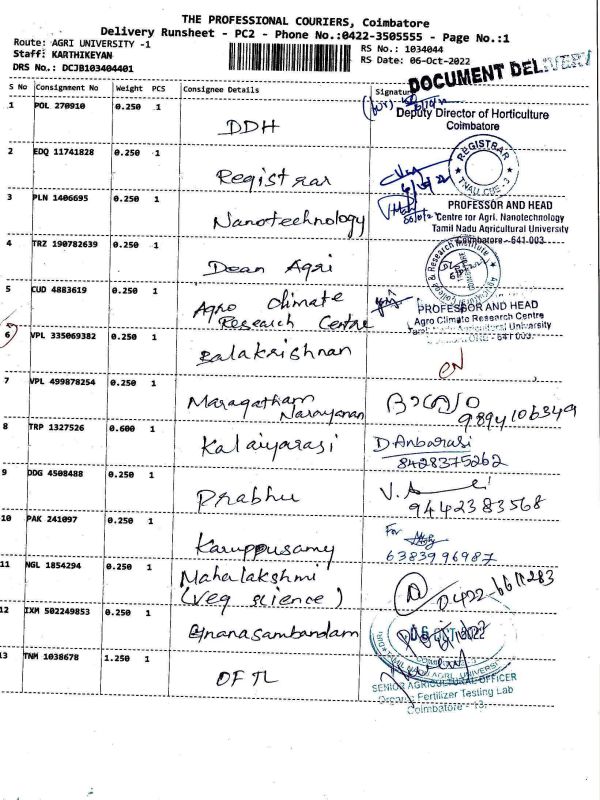 THE PROFESSIONAL COURIERS, Coimbatore
Delivery Runsheet - PC2 - Phone No.:0422-3505555 - Page No.:1
Route: AGRI UNIVERSITY -1
Staff: KARTHIKEYAN
DRS No.: DCJB103404401
RS No.: 1034044
RS Date: 06-Oct-2022
DOCUMENT DELIVERY
S No Consignment No Weight PCS Consignee Details Signature
1 POL 270910 0.250 1 DDH
Deputy Director of Horticulture
Coimbatore
2 EDQ 11741828 0.250 1 Registrar
REGISTRAR
TNAU, CBE - 3
3 PLN 1406695 0.250 1 Nanotechnology
PROFESSOR AND HEAD
Centre for Agri. Nanotechnology
Tamil Nadu Agricultural University
Coimbatore - 641 003
4 TRZ 190782639 0.250 1 Dean Agri
Agricultural College & Research Institute
5 CUD 4883619 0.250 1 Agro climate
Research Centre
PROFESSOR AND HEAD
Agro Climate Research Centre
Tamil Nadu Agricultural University
641 003.
6 VPL 335069382 0.250 1 Balakrishnan
7 VPL 499878254 0.250 1 Maragatham
Narayanan
9894106349
8 TRP 1327526 0.600 1 Kalaiyarasi
D Anbarasi
8428375262
9 DDG 4508488 0.250 1 Prabhu
9442383568
10 PAK 241097 0.250 1 Karuppusamy
For
6383996987
11 NGL 1854294 0.250 1 Mahalakshmi
(Veg science)
0422-6611283
12 IXM 502249853 0.250 1 Gnanasambandam
13 TNM 1038678 1.250 1 OFTL
SENIOR AGRICULTURAL OFFICER
Organic Fertilizer Testing Lab
Coimbatore - 13.